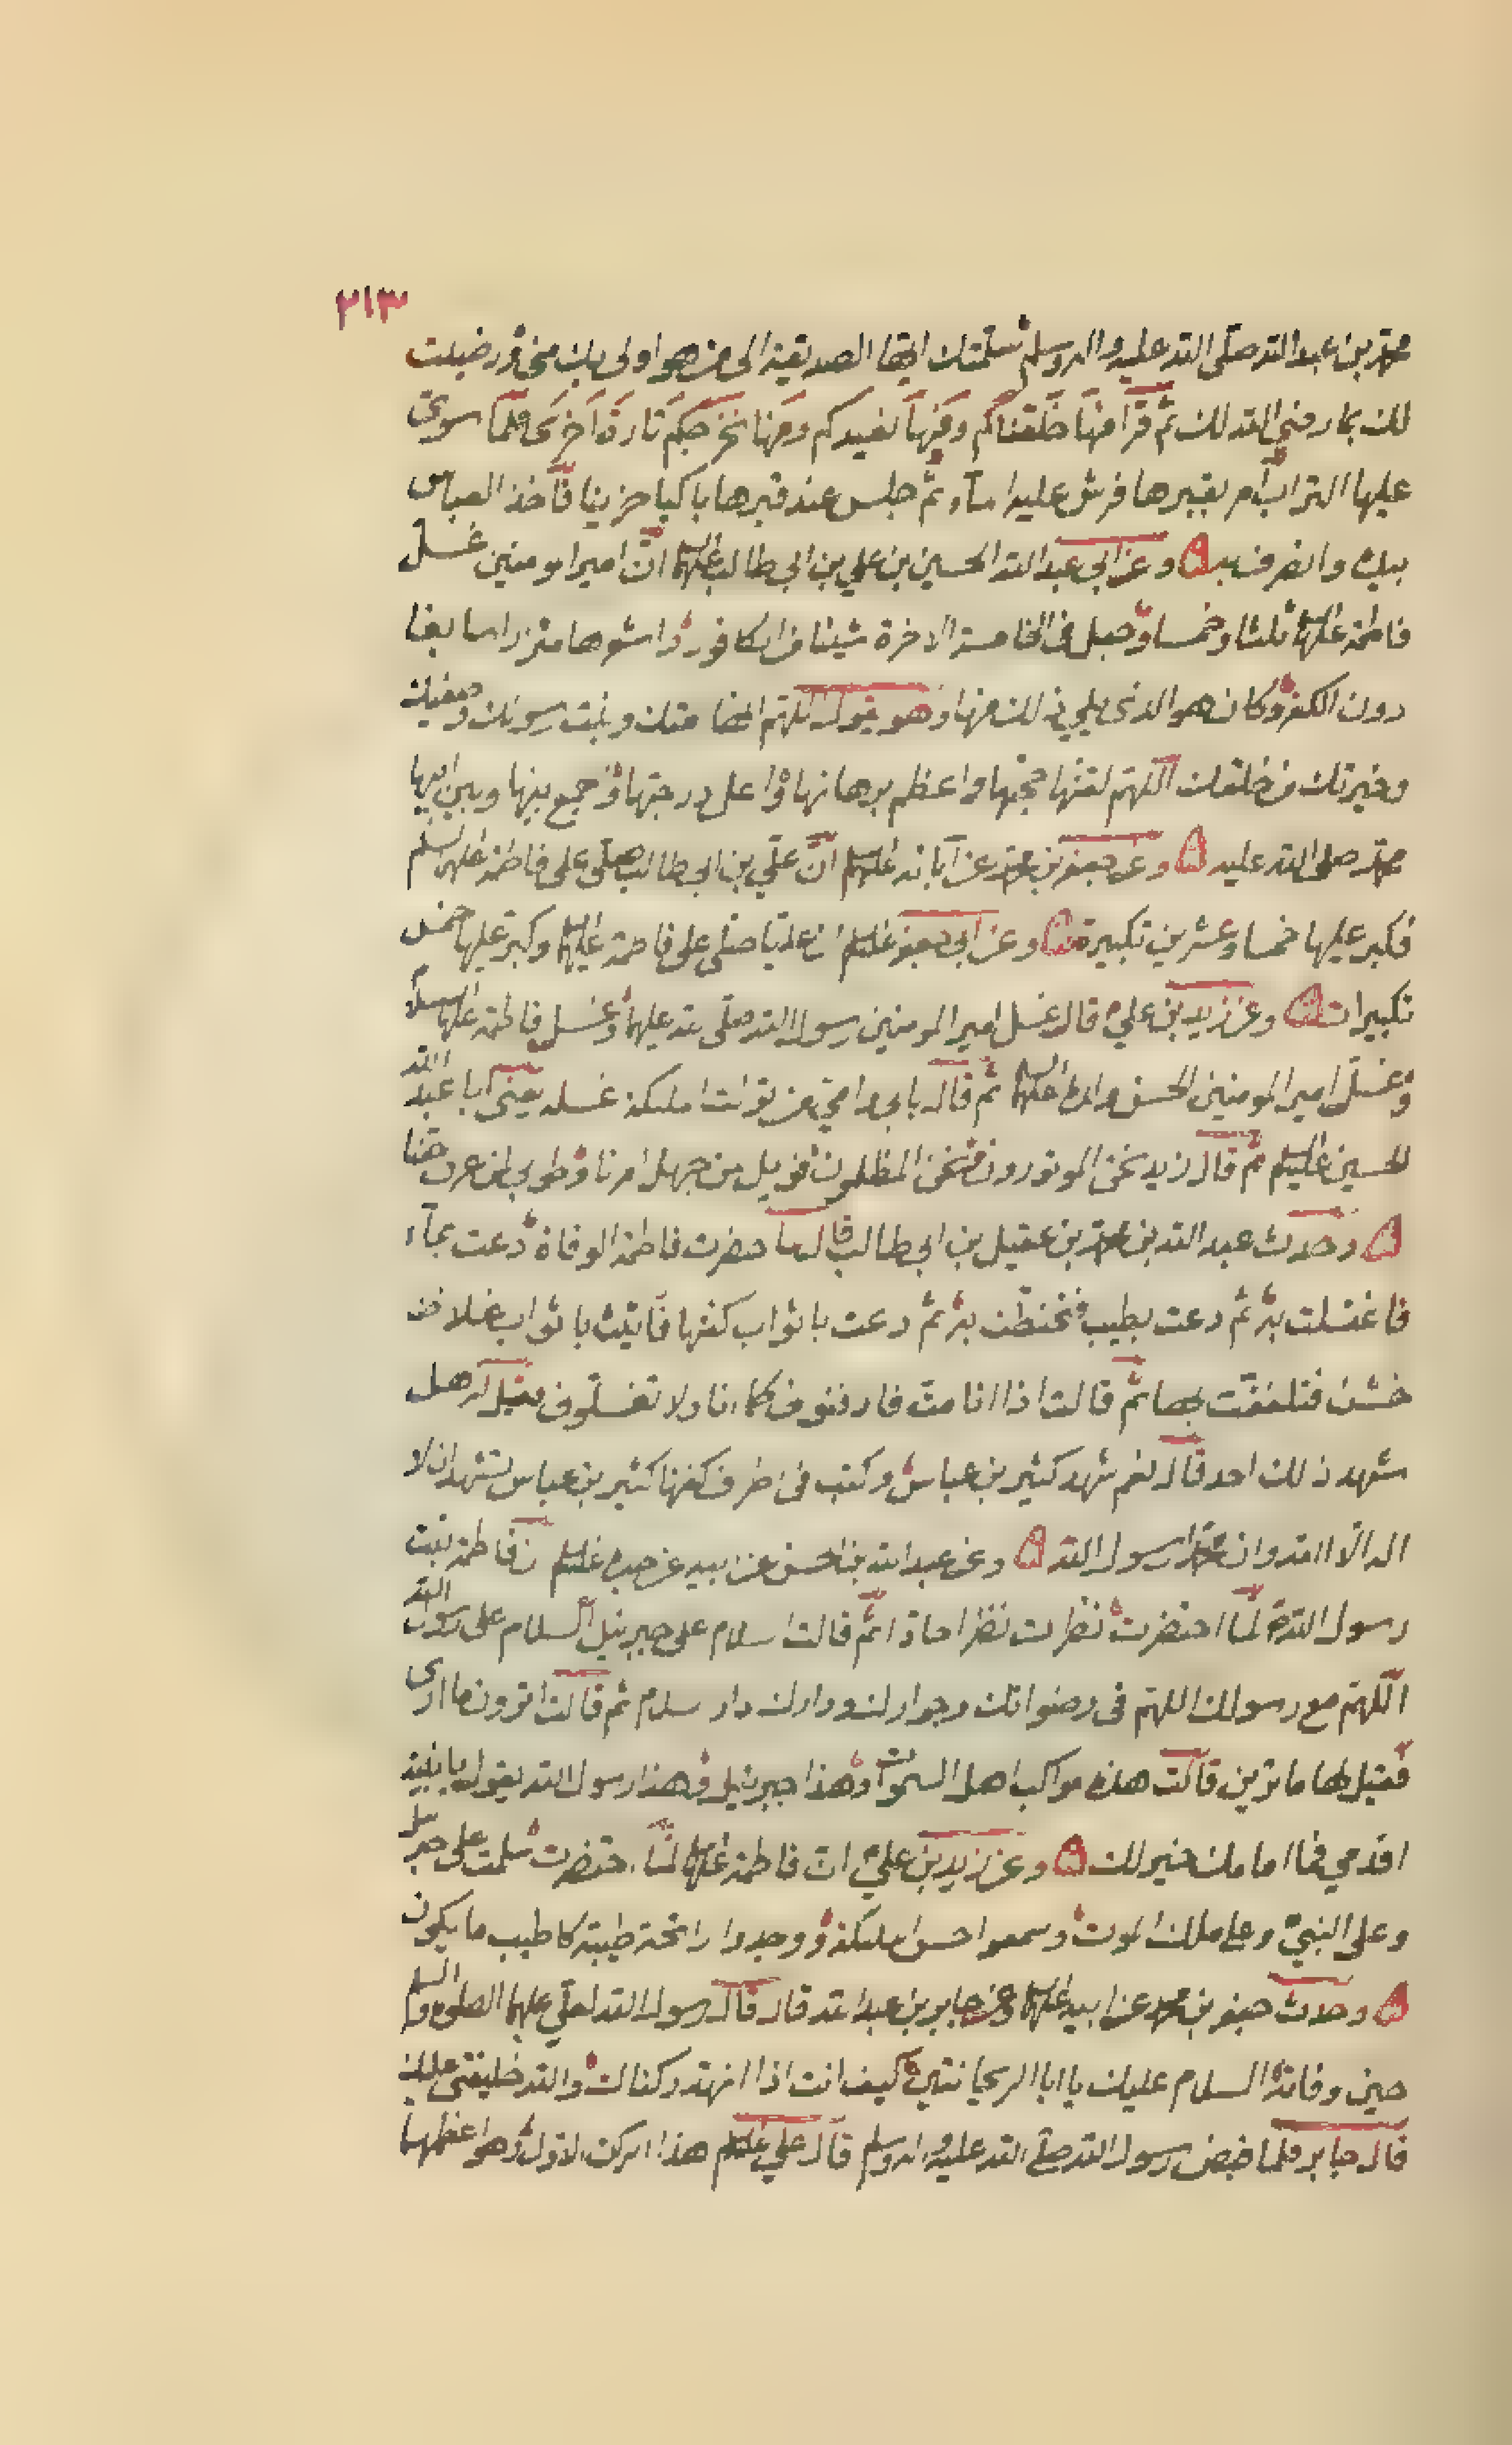 ٢١٣
محمد بن عبد الله صلى الله عليه واله وسلم سلمتك ايتها الصديقة الى من هو اولى بك مني ورضيت
لك بما رضي الله لك ثم قرأ منها خلقناكم وفيها نعيدكم ومنها نخرجكم تارة اخرى فلما سوى
عليها التراب امر بقبرها فرش عليه الماء ثم جلس عند قبرها باكيا حزينا فأخذ العباس
بيده وانصرف به وعن ابي عبد الله الحسين بن علي بن ابي طالب عليهما ان امير المومنين غسل
فاطمة عليها ثلثا وخمسا وجعل في الخامسة الاخرة شيئا من الكافور واشعرها مئزرا سابغا
دون الكفن وكان هو الذي يلي ذلك منها وهو يقول اللهم انها امتك وبنت رسولك وصفيك
وخيرتك من خلقك اللهم لقنها حجتها واعظم برهانها واعل درجتها واجمع بينها وبين ابيها
محمد صلى الله عليه وعن جعفر بن محمد عن آبائه عليهم ان علي بن ابي طالب صلى على فاطمة عليها السلم
فكبر عليها خمسا وعشرين تكبيرة وعن ابي جعفر عليه السلم ان عليا صلى على فاطمة عليها وكبر عليها خمس
تكبيرات وعن زيد بن علي قال غسل امير المومنين رسول الله صلى الله عليهما وغسل فاطمة عليها السلام
وغسل امير المومنين الحسن عليهما السلم ثم قال بابي وامي من تولت الملئكة غسله يعني ابا عبد الله
الحسين عليه السلم ثم قال زيد نحن الموتورون ونحن المظلومون فويل لمن جهل امرنا وطوبى لمن عرف حقنا
وحدث عبد الله بن محمد بن عقيل بن ابي طالب قال لما حضرت فاطمة الوفاة دعت بماء
فاغتسلت به ثم دعت بطيب فتحنطت به ثم دعت باثواب كفنها فأتيت باثواب غلاظ
خشن فتلففت بها ثم قالت اذا انا مت فادفنوني كما انا ولا تغسلوني فقيل له هل
شهد ذلك احد قال نعم شهد كثير بن عباس وكتب في اطرف كفنها كثير بن عباس تشهد ان لا
اله الا الله وان محمدا رسول الله وعن عبد الله بن الحسن عن ابيه عن جده عليهم السلم ان فاطمة بنت
رسول الله لما احتضرت نظرت نظرا حادا ثم قالت السلام على جبرئيل السلام على رسول الله
اللهم مع رسولك اللهم في رضوانك وجوارك ودارك دار السلام ثم قالت اترون ما ارى
فقيل لها ما ترين قالت هذه مواكب اهل السموات وهذا جبرئيل وهذا رسول الله يقول يا بنية
اقدمي فما امامك خير لك وعن زيد بن علي ان فاطمة عليها لما احتضرت سلمت على جبرئيل
وعلى النبي وعلى ملك الموت وسمعوا حس الملئكة ووجدوا رائحة طيبة كاطيب ما يكون
وحدث جعفر بن محمد عن ابيه عليهما السلم وعن جابر بن عبد الله قال قال رسول الله لعلي عليهما الصلوة والسلم
حين وفاته السلام عليك يا ابا الريحانتين كيف انت اذا انهد ركناك والله خليفتي عليك
قال جابر فلما قبض رسول الله صلى الله عليه واله وسلم قال علي عليه السلم هذا الركن الاول وهو اعظمهما